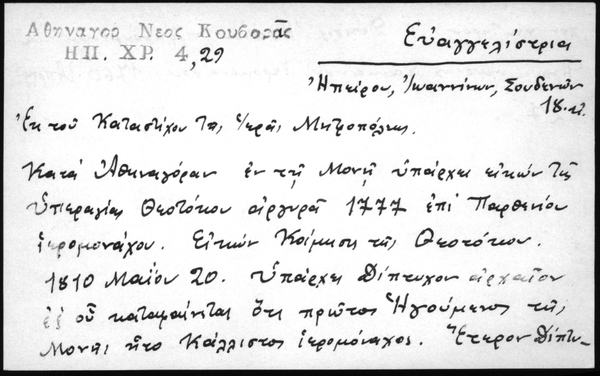 Ἀθηναγορ Νεος Κουβαρᾶς
ΗΠ. ΧΡ. 4, 29
Εὐαγγελίστρια
Ἠπείρου, Ἰωαννίνων, Σουδενῶν
18
Ἐκ τοῦ Καταστίχου τῆς Ἱερᾶς Μητροπόλεως.
Κατὰ Ἀθηναγόραν ἐν τῇ Μονῇ ὑπάρχει εἰκὼν τῆς
Ὑπεραγίας Θεοτόκου ἀργυρᾶ 1777 ἐπὶ Παρθενίου
ἱερομονάχου. Εἰκὼν Κοίμησις τῆς Θεοτόκου.
1810 Μαΐου 20. Ὑπάρχει Δίπτυχον ἀρχαῖον
ἐξ οὗ καταφαίνεται ὅτι πρῶτος Ἡγούμενος τῆς
Μονῆς ἦτο Κάλλιστος ἱερομόναχος. Ἕτερον Δίπτυ-